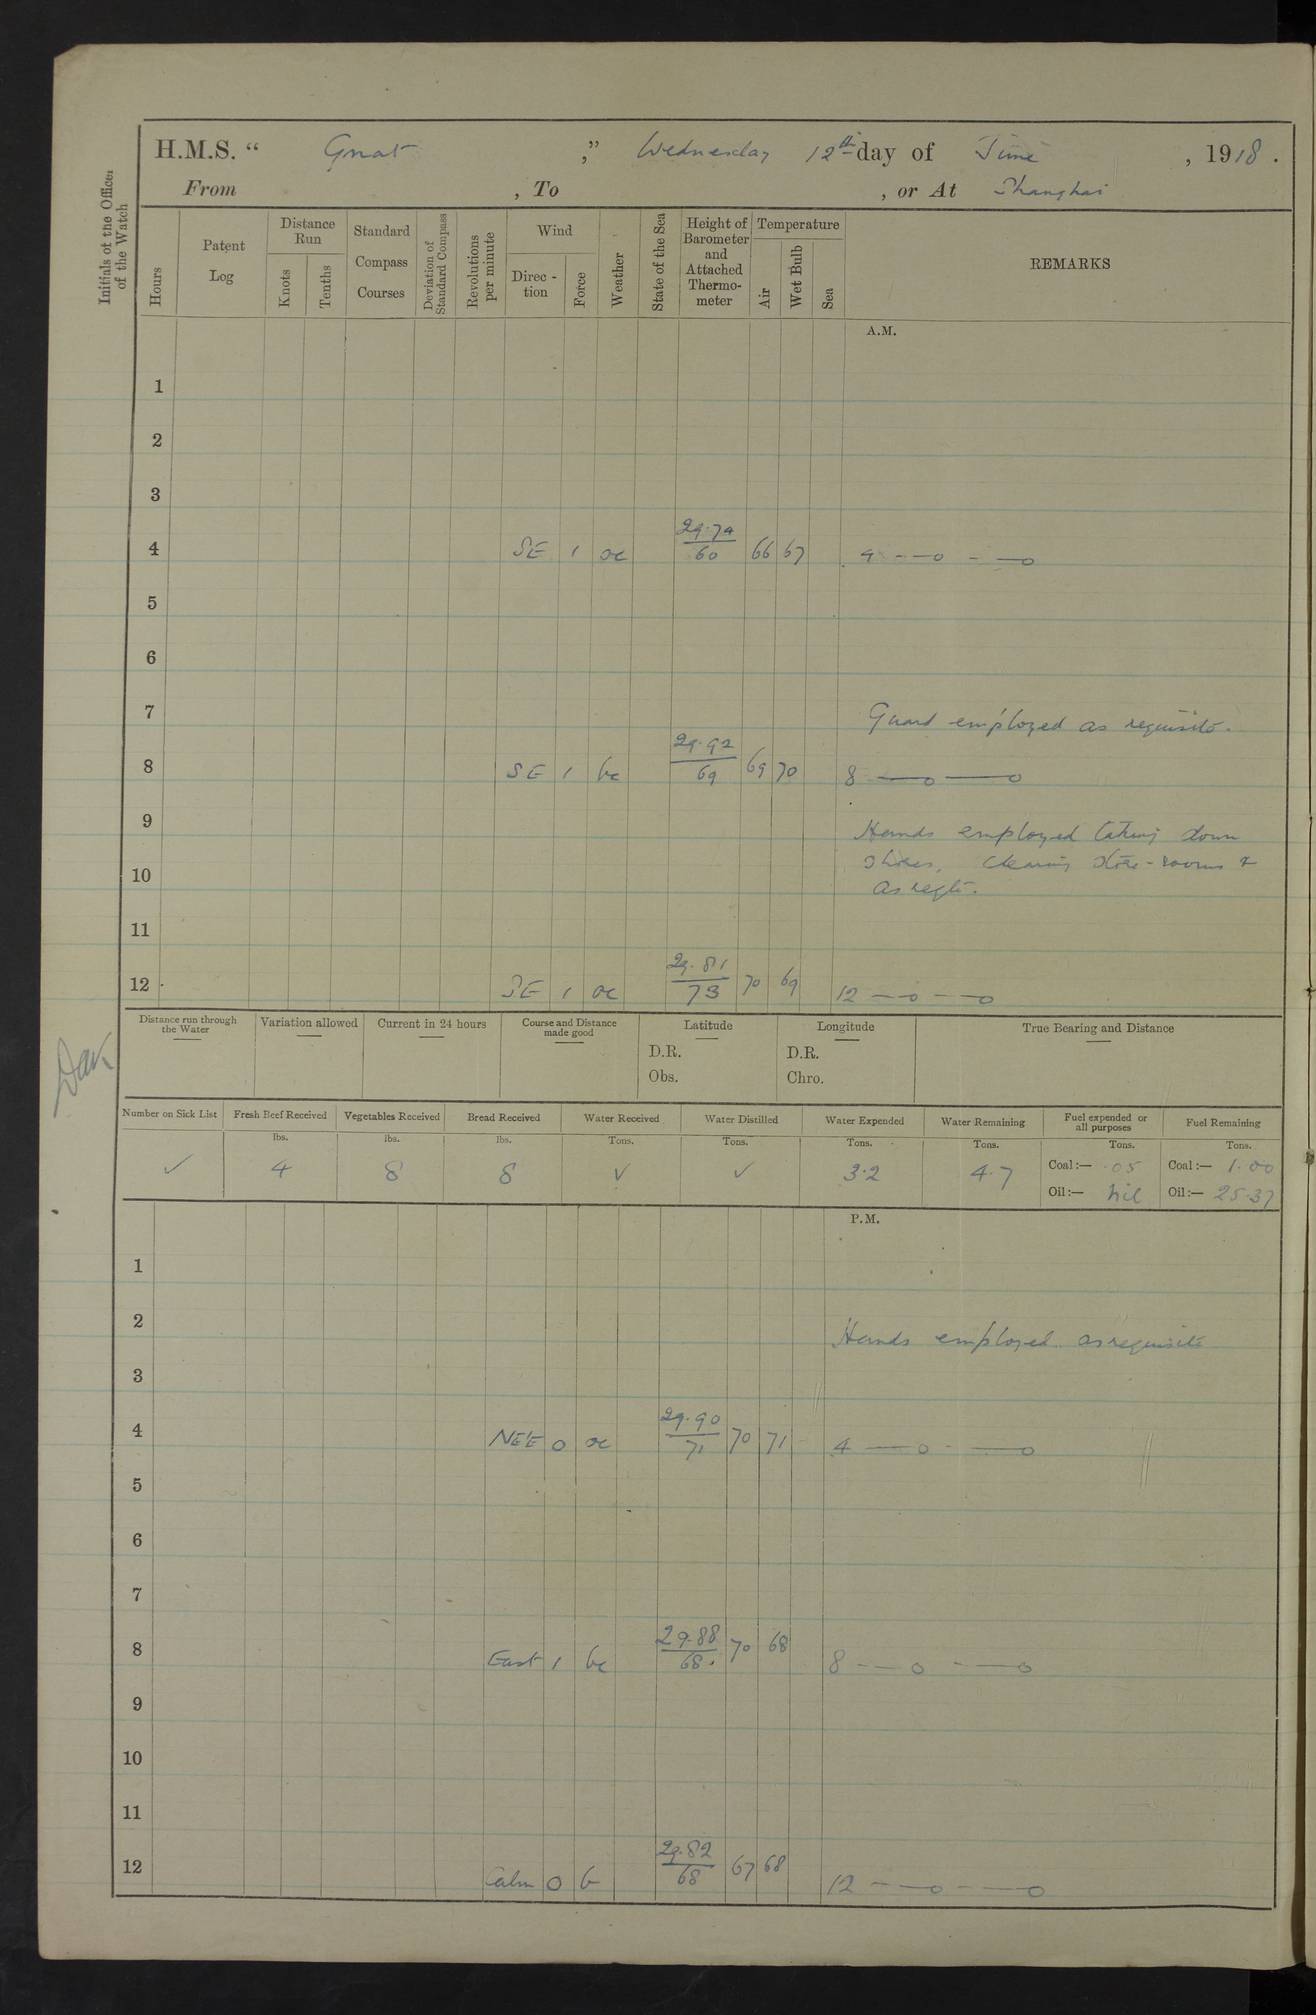 H.M.S. “ Gnat ,” Wednesday 12th day of June , 1918 .
From , To , or At Shanghai
Initials of the Officer of the Watch
Hours
Patent Log
Distance Run
Knots
Tenths
Standard Compass Courses
Deviation of Standard Compass
Revolutions per minute
Wind
Direc-tion
Force
Weather
State of the Sea
Height of Barometer and Attached Thermo-meter
Temperature
Air
Wet Bulb
Sea
REMARKS
A.M.
1
2
3
4 SE 1 oc 29.74 / 60 66 67 4 — o — o
5
6
7 Guard employed as requisite.
8 SE 1 bc 29.92 / 69 69 70 8 — o — o
9 Hands employed taking down
stores, clearing store-rooms &
10 as reqte.
11
12 SE 1 oc 29.81 / 73 70 69 12 — o — o
Distance run through the Water
Variation allowed
Current in 24 hours
Course and Distance made good
Latitude
D.R.
Obs.
Longitude
D.R.
Chro.
True Bearing and Distance
Number on Sick List ✓
Fresh Beef Received lbs. 4
Vegetables Received lbs. 8
Bread Received lbs. 8
Water Received Tons. ✓
Water Distilled Tons. ✓
Water Expended Tons. 3.2
Water Remaining Tons. 4.7
Fuel expended or all purposes Tons.
Coal :— .05
Oil :— Nil
Fuel Remaining Tons.
Coal :— 1.00
Oil :— 25.37
P.M.
1
2 Hands employed as requisite
3
4 NE'E 0 oc 29.90 / 71 70 71 4 — o — o
5
6
7
8 East 1 bc 29.88 / 68. 70 68 8 — o — o
9
10
11
12 Calm 0 b 29.82 / 68 67 68 12 — o — o